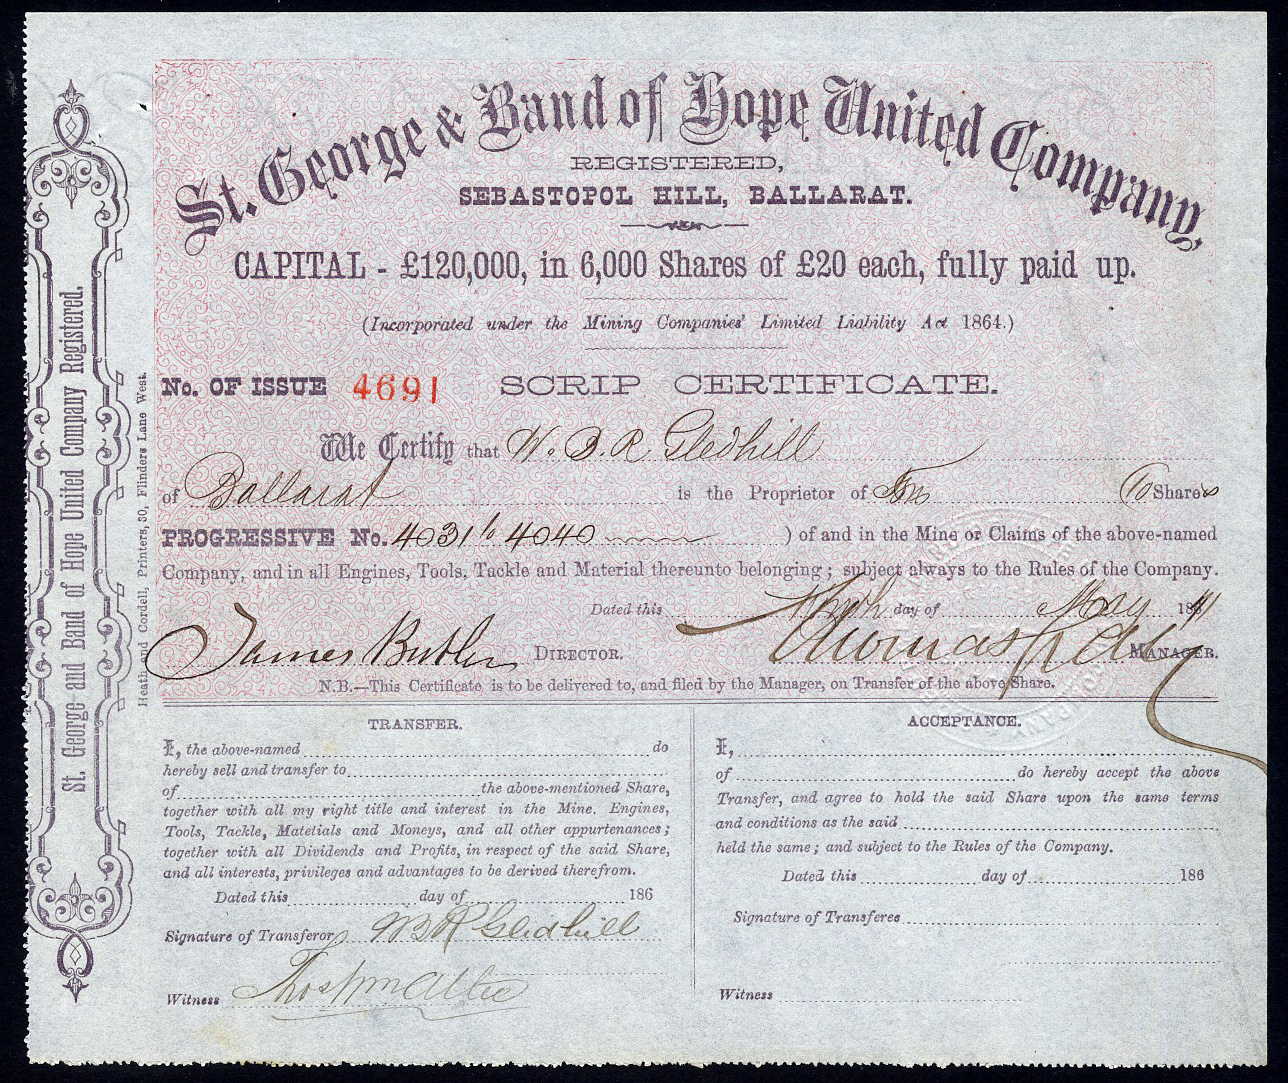 St. George & Band of Hope United Company,
REGISTERED,
SEBASTOPOL HILL, BALLARAT.
CAPITAL - £120,000, in 6,000 Shares of £20 each, fully paid up.
(Incorporated under the Mining Companies' Limited Liability Act 1864.)
No. OF ISSUE 4691 SCRIP CERTIFICATE.
We Certify that W. B. R Gledhill
of Ballarat is the Proprietor of Ten (10 Shares
PROGRESSIVE No. 4031 to 4040 ) of and in the Mine or Claims of the above-named
Company, and in all Engines, Tools, Tackle and Material thereunto belonging; subject always to the Rules of the Company.
Dated this day of May 18
James Butler DIRECTOR. Thomas MANAGER.
N.B.—This Certificate is to be delivered to, and filed by the Manager, on Transfer of the above Share.
St. George and Band of Hope United Company Registered.
Heath and Cordell, Printers, 30, Flinders Lane West.
TRANSFER.
I, the above-named do
hereby sell and transfer to
of the above-mentioned Share,
together with all my right title and interest in the Mine. Engines,
Tools, Tackle, Matetials and Moneys, and all other appurtenances;
together with all Dividends and Profits, in respect of the said Share,
and all interests, privileges and advantages to be derived therefrom.
Dated this day of 186
Signature of Transferor WBR Gledhill
Witness
ACCEPTANCE.
I,
of do hereby accept the above
Transfer, and agree to hold the said Share upon the same terms
and conditions as the said
held the same; and subject to the Rules of the Company.
Dated this day of 186
Signature of Transferee
Witness